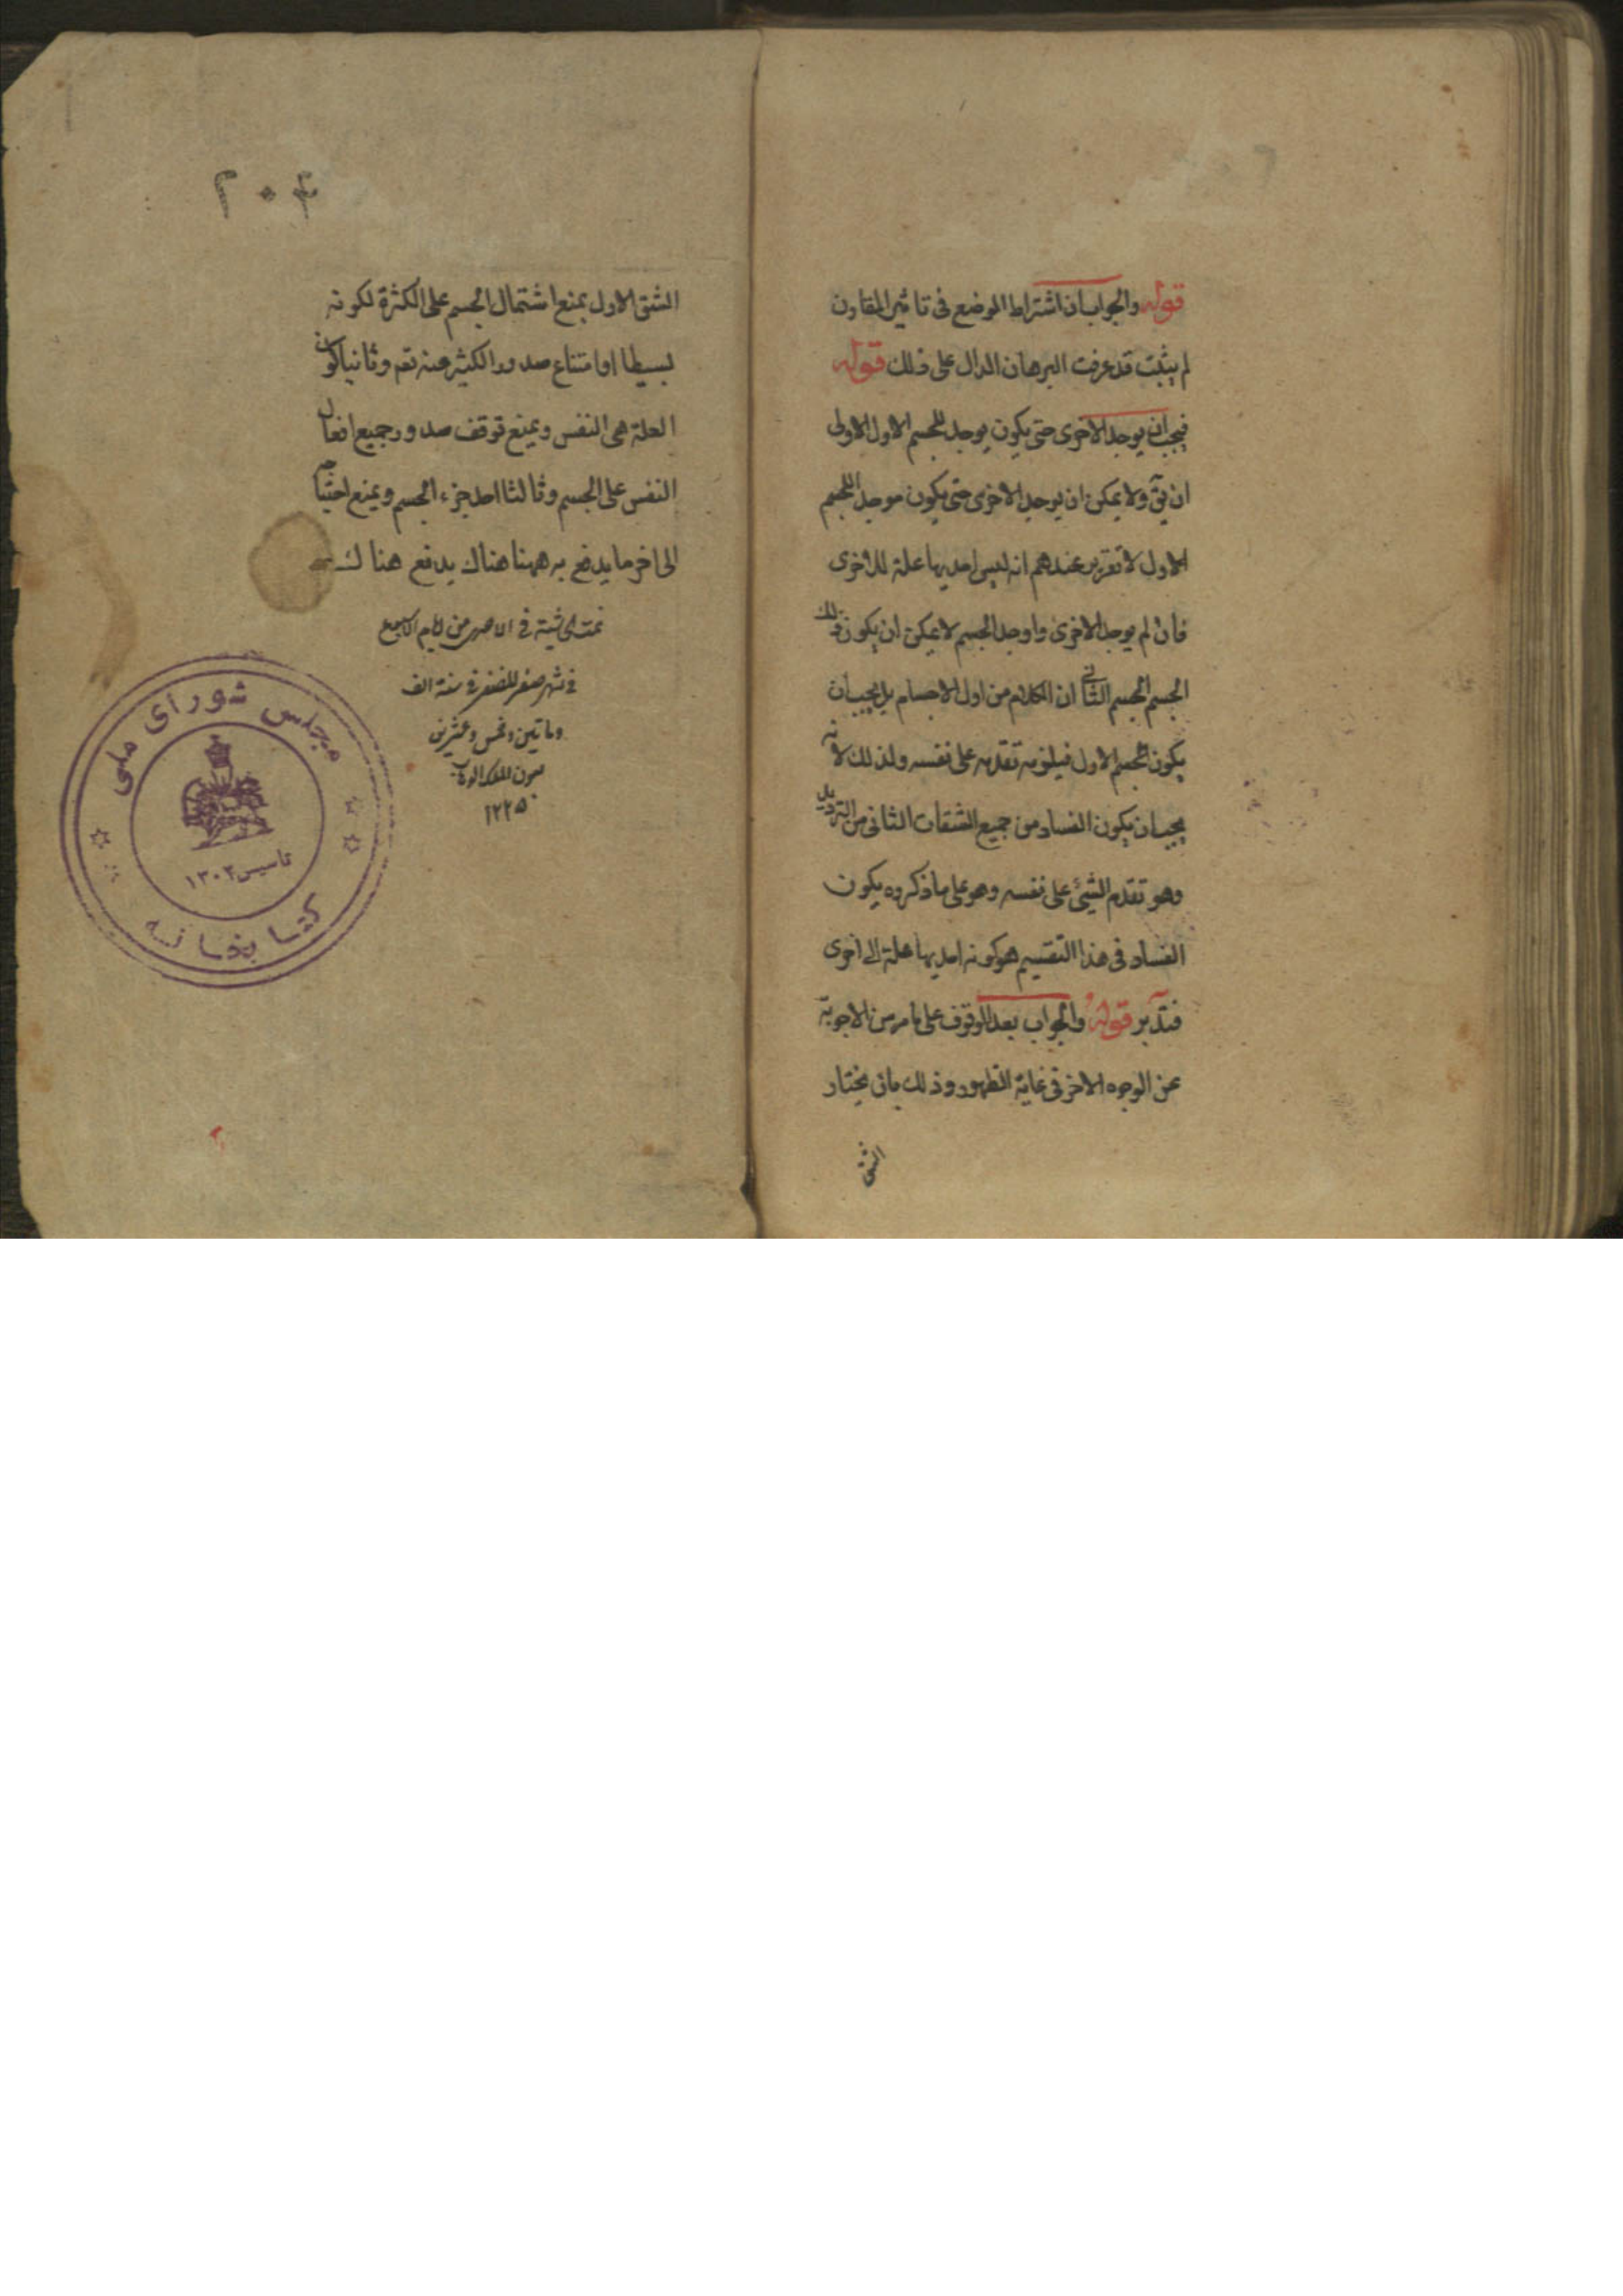 قوله والجواب ان اشتراط الموضع فى تاثير المقارن
لم يثبت قد عرفت البرهان الدال على ذلك قوله
فيجب ان يوجد الاخرى حتى يكون يوجد للجسم الاول الاولى
ان يقى ولا يمكن ان يوجد الاخرى حتى يكون موجد اللجسم
الاول لا تقرير عندهم انه ليس احديها علة للاخرى
فان لم يوجد الاخرى واوجد الجسم لا يمكن ان يكون ذلك
الجسم الجسم الثانى ان الكلام من اول الاجسام بل يجب ان
يكون الجسم الاول فيلزم تقدمه على نفسه ولذلك لانه
يجب ان يكون الفساد من جميع الشقات الثانى من الترديد
وهو تقدم الشئ على نفسه وهو على ما ذكروه يكون
الفساد فى هذا التقسيم هو كونه احديها علة الى اخرى
فتدبر قوله والجواب بعد الوقوف على ما مر من الاجوبة
عن الوجوه الاخر فى غاية الظهور وذلك بان يختار
الشق
٢٠٤
الشق الاول بمنع اشتمال الجسم على الكثرة لكونه
بسيطا او امتناع صدور الكثير عنه تعم وثانيا كون
العلة هى النفس ويمنع توقف صدور جميع افعال
النفس على الجسم وثالثا احد جزء الجسم ويمنع احتياجه
الى اخر ما يدفع به ههنا هناك يدفع هناك
تمت الحاشية فى من ايام
فى شهر صفر المظفر فى سنة الف
وماتين وخمس وعشرين
بعون الملك الوهاب
١٢٢٥
مجلس شوراى ملى
تاسيس ١٣٠٢
كتابخانه